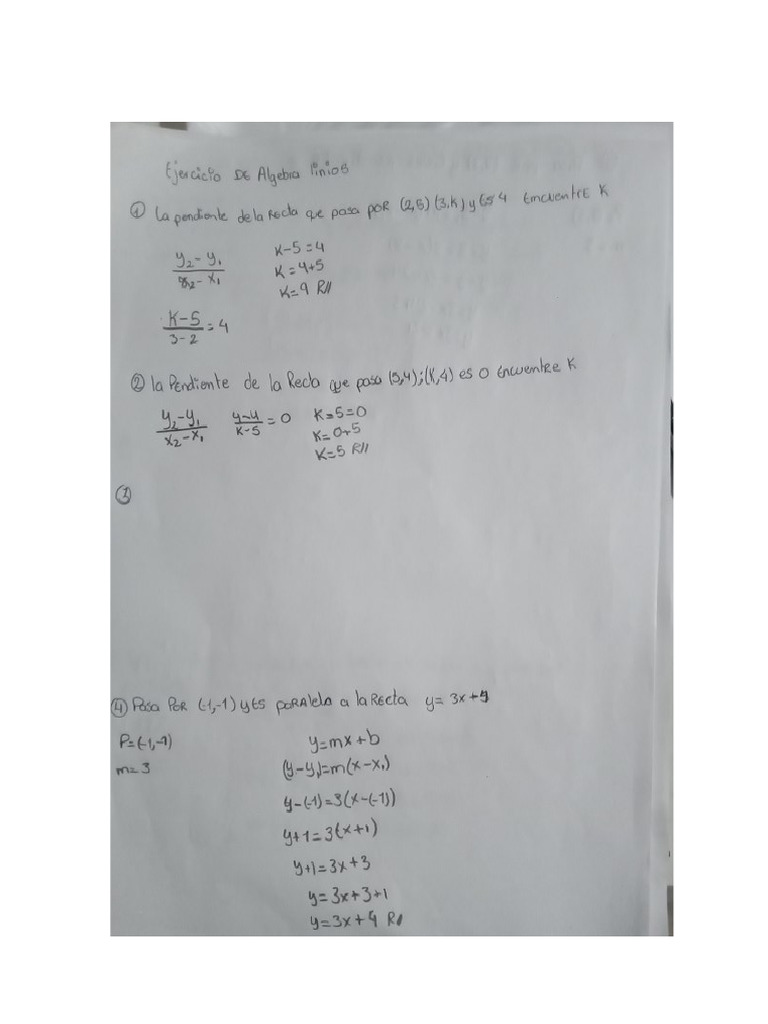 Ejercicio DE Algebra linios
① La pendiente de la Recta que pasa POR (2,5) (3,K) y es 4 Encuentre K
y₂-y₁/x₂-x₁
K-5=4
K=4+5
K=9 R//
K-5/3-2=4
② la Pendiente de la Recta que pasa (5,4);(K,4) es 0 Encuentre K
y₂-y₁/x₂-x₁ 4-4/K-5=0
K=5=0
K=0+5
K=5 R//
③
④ Pasa POR (-1,-1) y ES PARAlela a la RECta y=3x+9
P=(-1,-1)
m=3
y=mx+b
(y-y₁)=m(x-x₁)
y-(-1)=3(x-(-1))
y+1=3(x+1)
y+1=3x+3
y=3x+3+1
y=3x+4 R//